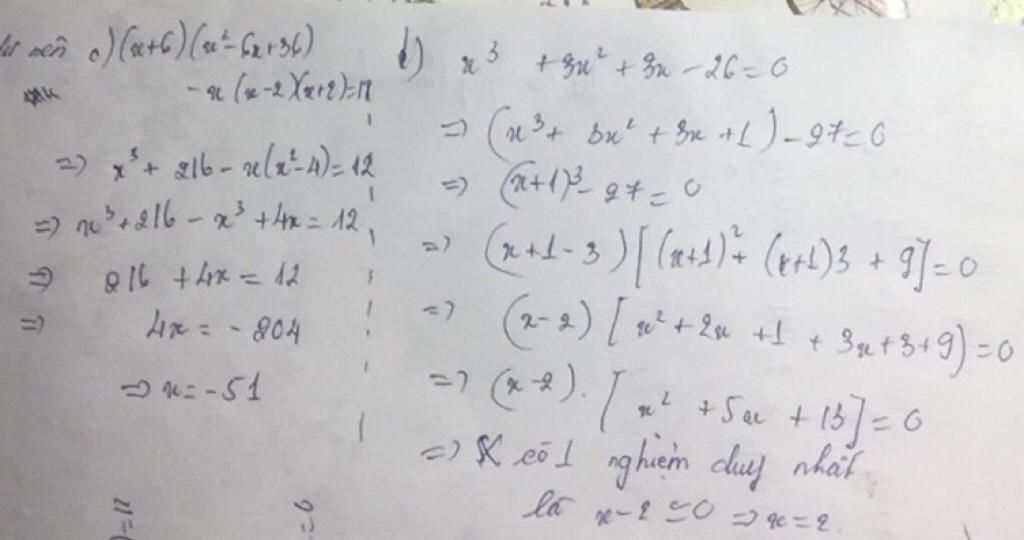 nên c) (x+6)(x²-6x+36)
- x(x-2)(x+2)=12
=> x³ + 216 - x(x²-4)=12
=> x³+216 - x³ +4x = 12
=> 216 +4x = 12
=> 4x = -204
=> x = -51
d) x³ +3x² +3x -26=0
=> (x³+ 3x² +3x +1) -27=0
=> (x+1)³- 27= 0
=> (x+1-3)[(x+1)²+ (x+1)3 + 9]=0
=> (x-2) [x²+2x +1 + 3x+3+9)=0
=> (x-2). [x² +5x +13]=0
=> X có 1 nghiệm duy nhất
là x-2=0 => x=2.
)=11
=0